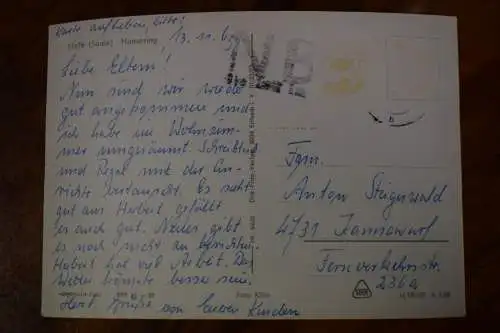 Karte aufheben, bitte!
Halle (Saale) Hansering
13.11.69
Liebe Eltern!
Nun sind wir wieder
gut angekommen und
ich habe im Wohnzim-
mer umgeräumt. Schreibtisch
und Regal mit der An-
richte vertauscht. Es sieht
gut aus. Herbert gefällt
es auch gut. Neues gibt
es noch nicht zu berichten.
Herbert hat viel Arbeit. Das
Wetter könnte besser sein.
Herzl. Grüße von Euren Kindern
Fam.
Anton Steigerwald
4731 Kannawurf
Fernverkehrsstr.
236a
Foto: